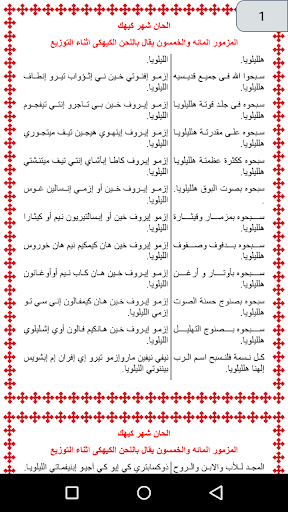 1
الحان شهر كيهك
المزمور المائه والخمسون يقال باللحن الكيهكى اثناء التوزيع
هلليلويا.
سبحوا الله فى جميع قديسيه هلليلويا.
إزمو إفنوتي خين ني إثؤواب تيرو إنطاف الليلويا.
سبحوه فى جلد قوتة هلليلويا
إزمو إيروف خين بي تاجرو إنتي تيفجوم الليلويا.
سبحوه على مقدرتة هلليلويا.
إزمو إيروف إيهنوي هيجين تيف ميتجوري الليلويا.
سبحوه ككثرة عظمتة هلليلويا.
إزمو إيروف كاطا إبأشاي إنتي تيف ميتنشتي الليلويا.
سبحوه بصوت البوق هلليلويا.
إزمو إيروف خين أو إزمي إنسالبن غوس الليلويا.
سبحوه بمزمار وقيثارة هلليلويا.
إزمو إيروف خين أو إبسالتيريون نيم أو كيثارا الليلويا.
سبحوه بدفوف وصفوف هلليلويا.
إزمو إيروف خين هان كيمكيم نيم هان خوروس الليلويا.
سبحوه بأوتار وأرغن هلليلويا.
إزمو إيروف خين هان كاب نيم أوأوغانون الليلويا.
سبحوه بصنوج حسنة الصوت هلليلويا.
إزمو إيروف خين هان كيمفالون إني سي تو الليلويا.
سبحوه بصنوج التهليل هلليلويا.
إزمو إيروف خين هانكيم فالون أوي إشليلوي الليلويا.
كل نسمة فلتسبح اسم الرب إلهنا هلليلويا.
نيفي نيفين ماروإزمو تيرو إي إفران إم إبشويس بيننوتي الليلويا.
الحان شهر كيهك
المزمور المائه والخمسون يقال باللحن الكيهكى اثناء التوزيع
المجد للأب والابن والروح
ذوكصابتري كي إيو كي أجيو إبنيفماتي الليلويا.